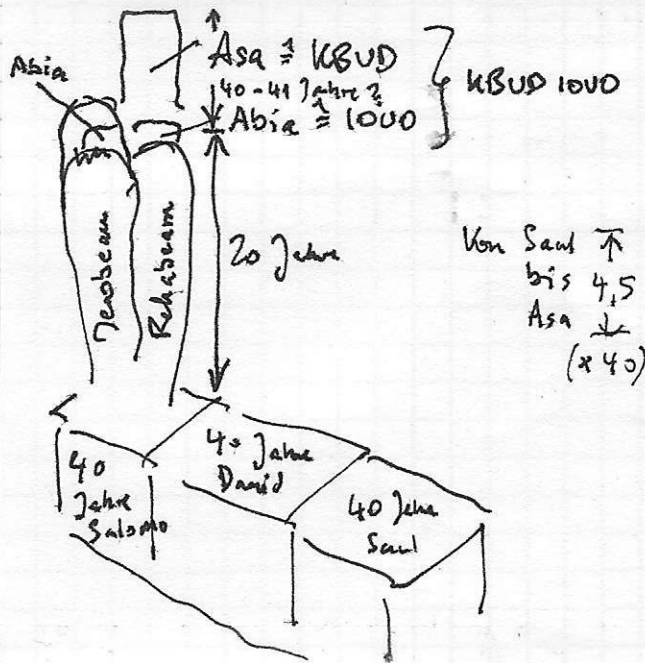 Abia
Asa ≙ KBUD
40-41 Jahre ?
Abia ≙ IOUO
} KBUD IOUO
Jerobeam
Rehabeam
20 Jahre
Von Saul ↑
bis 4,5
Asa ↓
(x 40)
40
Jahre
Salomo
40 Jahre
David
40 Jahre
Saul